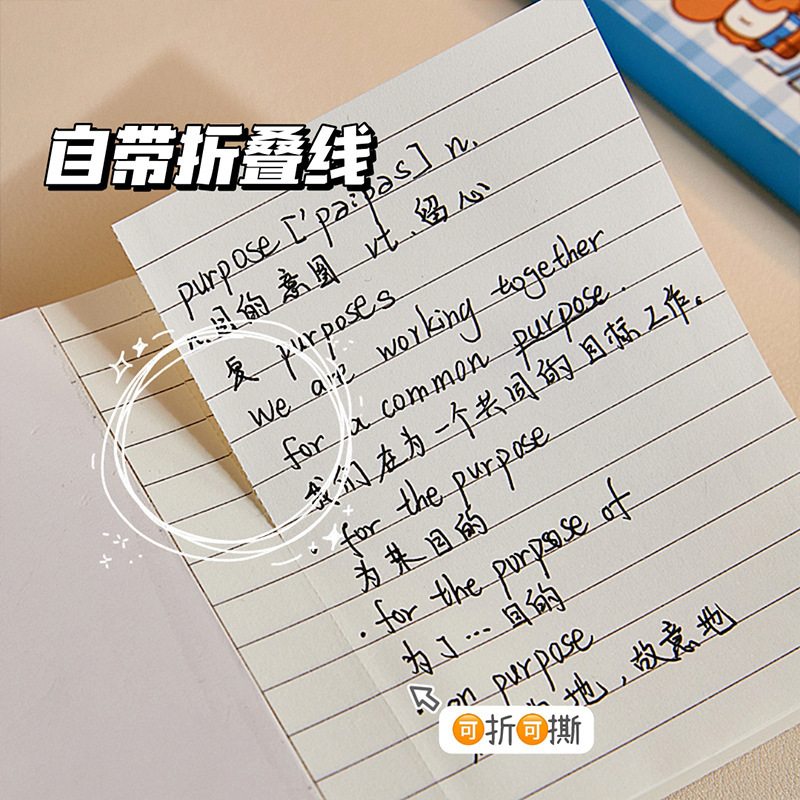 自带折叠线
purpose ['pə:pəs] n.
目的意图 vt. 留心
复 purposes
we are working together
for a common purpose.
我们在为一个共同的目标工作。
· for the purpose
为其目的
· for the purpose of
为了…目的
· on purpose
地,故意地
可折可撕